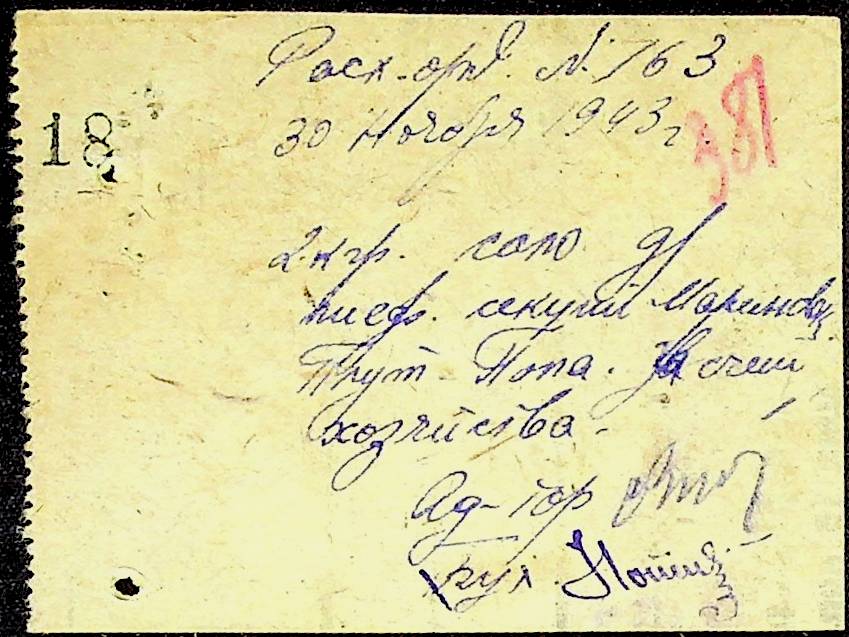 Расх. орд. №. 763
30 Ноября 1943 г.
381
18
2 кгр. сало
шеф. секции Маринов
Прут - Попа. За счет
хозяйства -
Ад-тор
Бух.